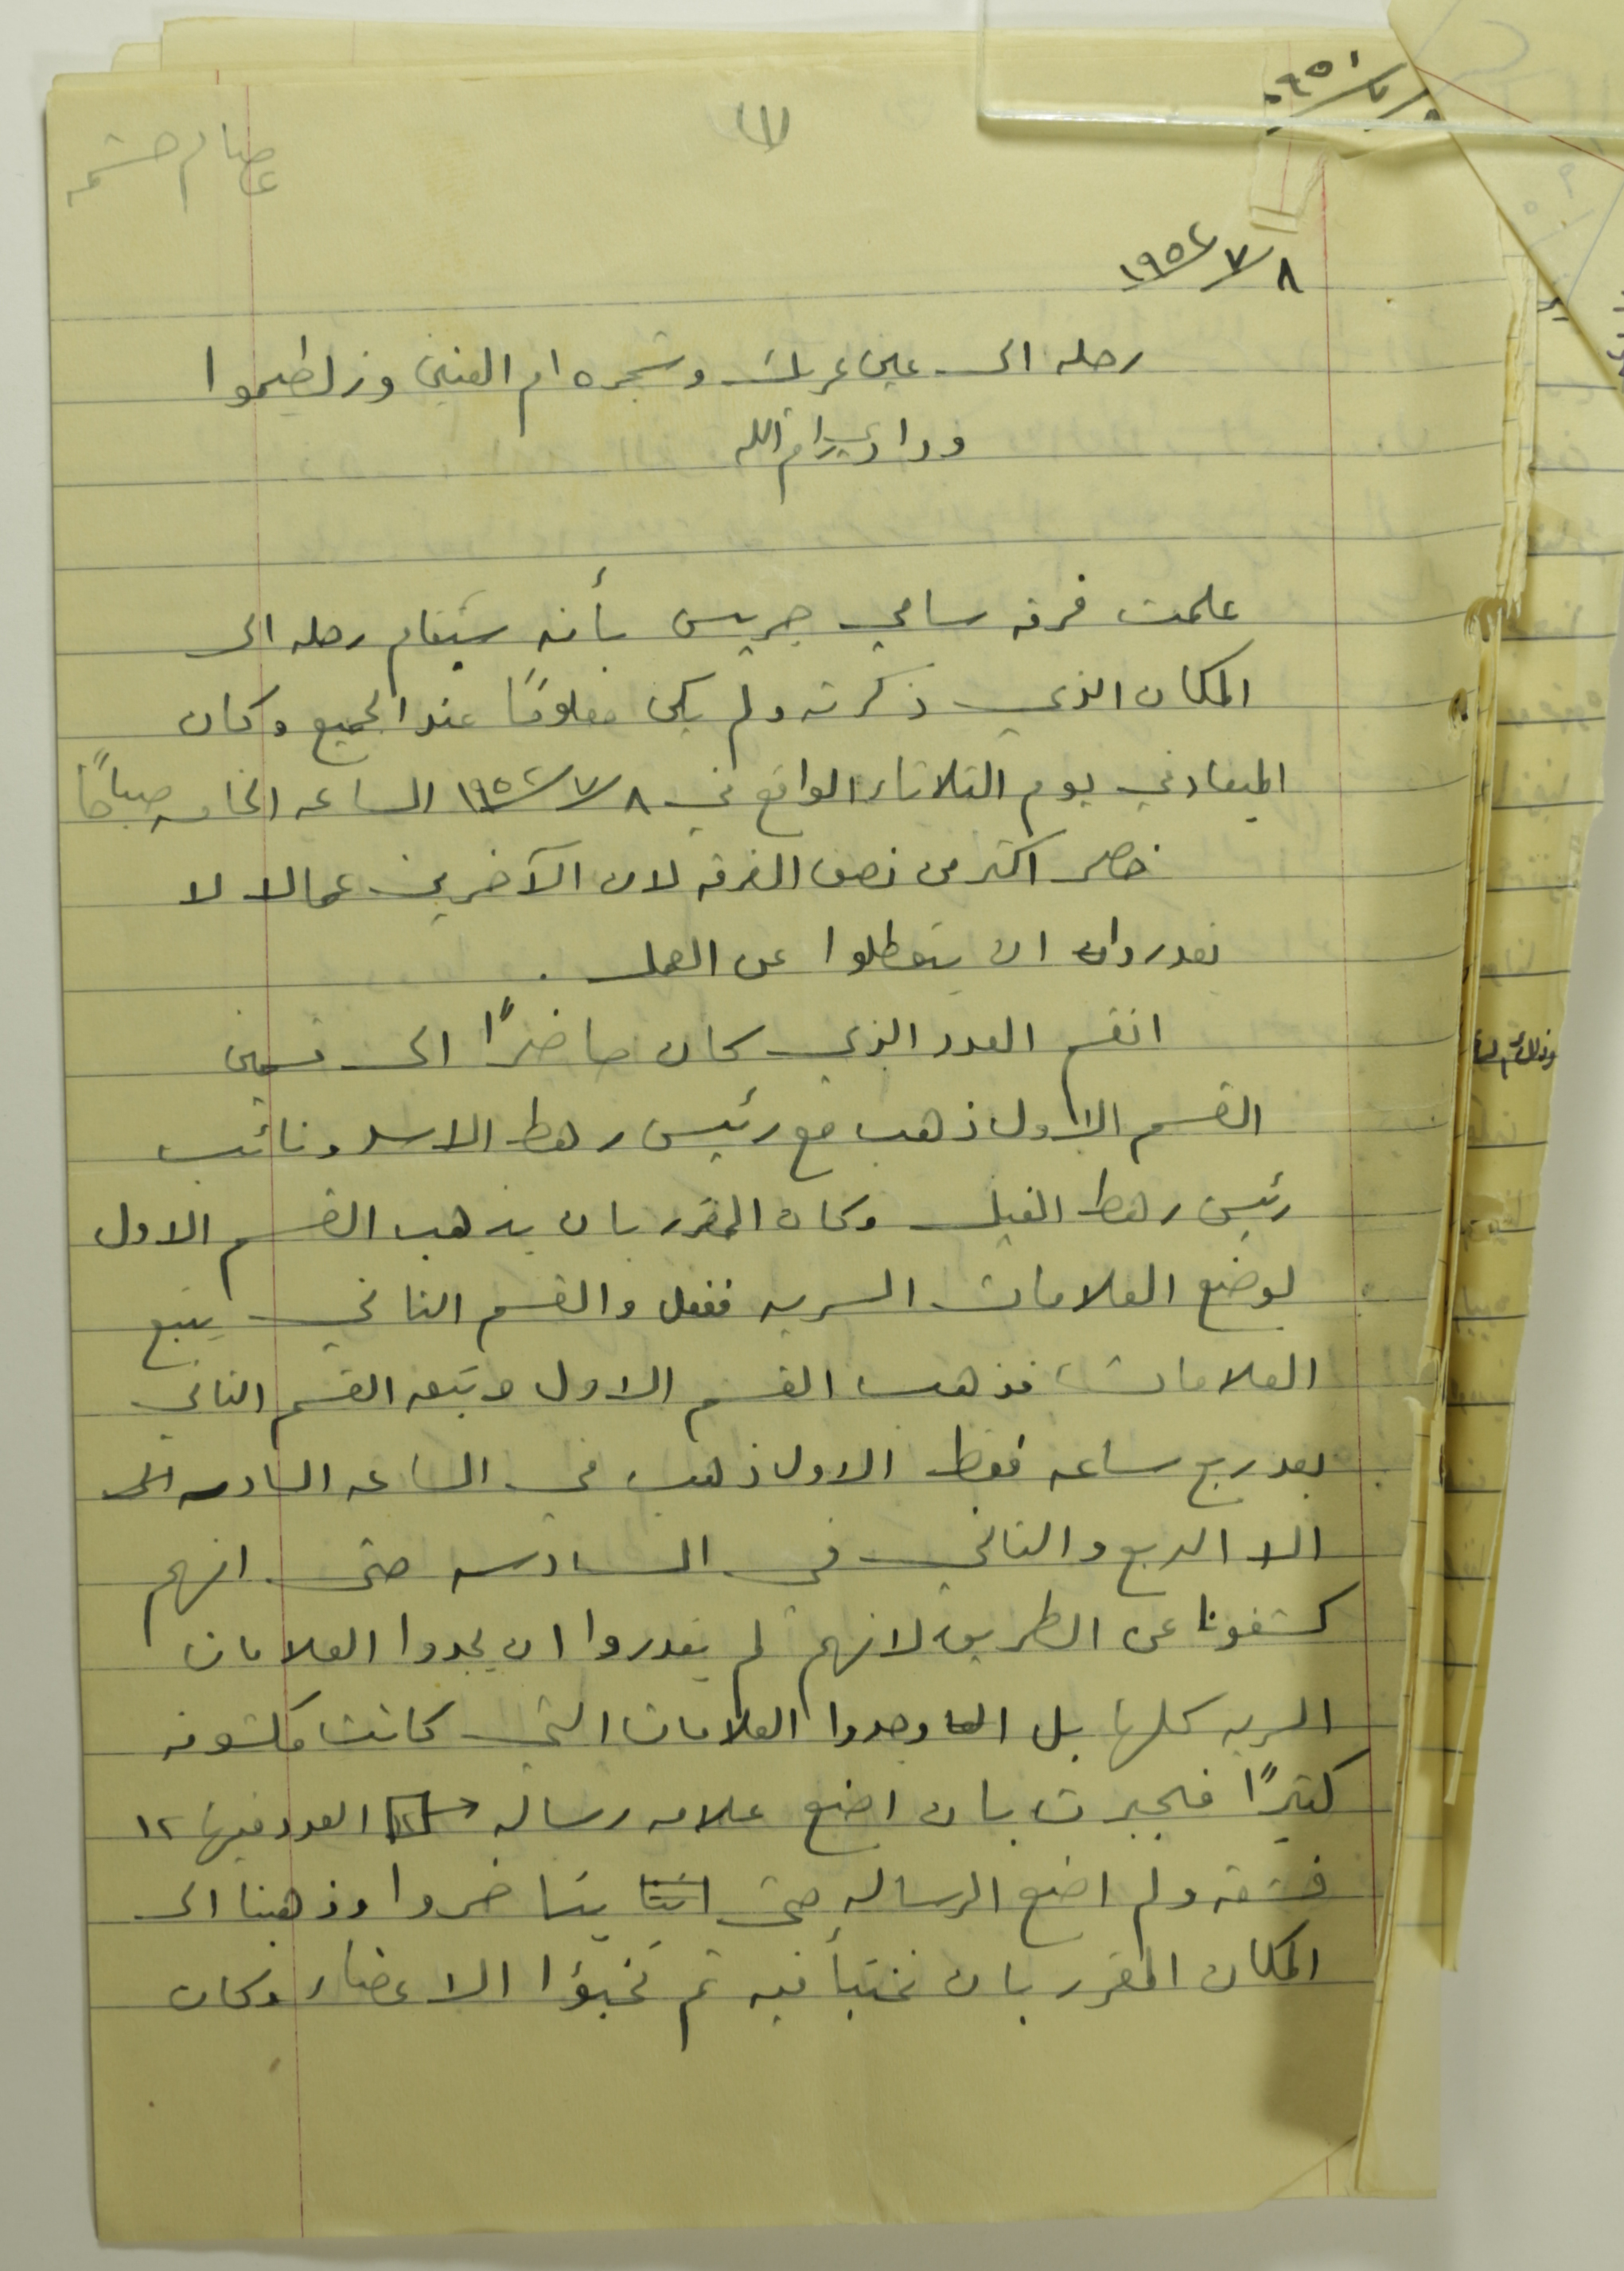 (١)
عصام حشمه
١٩٥٢/٧/٨
رحله الى عين عريك وشجره ام العينين وزلطيموا
ووادي رام الله
علمت فرقه سامي جريس بأنه ستقام رحله الى
المكان الذي ذكرته ولم يكن معلومًا عند الجميع وكان
الميعاد في يوم الثلاثاء الواقع في ١٩٥٢/٧/٨ الساعه الخامسه صباحًا
حضر اكثر من نصف الفرقه لان الآخرين عمالا لا
يقدروان ان يتعطلوا عن العمل .
انقسم العدد الذي كان حاضرًا الى قسمين
القسم الاول ذهب مع رئيس رهط الاسد ونائب
رئيس رهط الفيل وكان المقرر بان يذهب القسم الاول
لوضع العلامات السريه ففعل والقسم الثاني يتبع
العلامات فذهب القسم الاول وتبعه القسم الثاني
بعد ربع ساعه فقط الاول ذهب في الساعه السادسه
الا الربع والثاني في السادسه حتى انهم
كشفونا عن الطريق لانهم لم يقدروا ان يجدوا العلامات
السريه كلها بل وجدوا العلامات التي كانت مكشوفه
كثيرًا فجبرت بان اضع علامه رساله العدد فيها ١٢
فشقه ولم اضع الرساله حتى يتاخروا وذهبنا الى
المكان المقرر بان نختبأ فيه ثم تخبؤا الاعضاء وكان